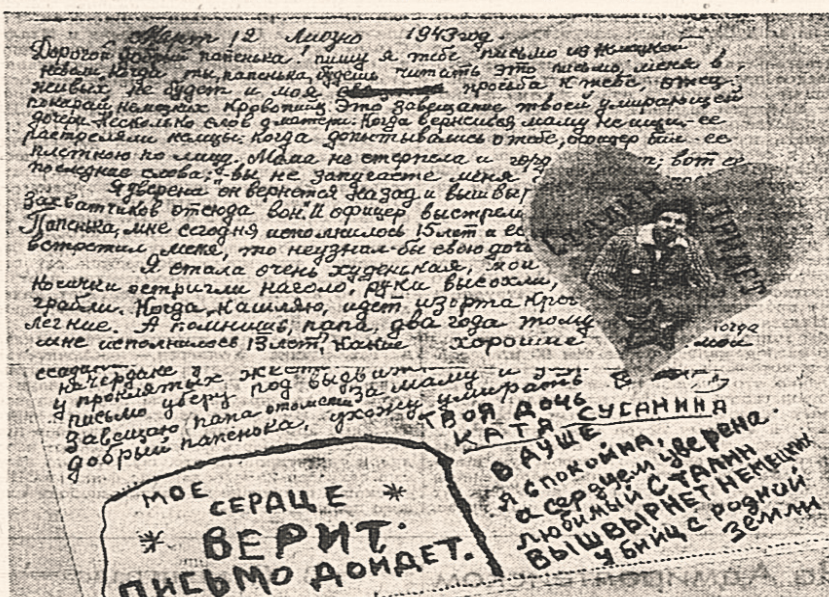 Март 12 Лиозно 1943 год.
Дорогой добрый папенька! пишу я тебе письмо из немецкой
неволи, когда ты, папенька, будешь читать это письмо, меня в
живых не будет и моя просьба к тебе, отец,
покарай немецких кровопийц. Это завещание твоей умирающей
дочери. Несколько слов о матери. Когда вернешься, маму не ищи - ее
растреляли немцы. Когда допытывались о тебе, офицер бил ее
плеткою по лицу. Мама не стерпела и горд вот ее
последние слова: "вы не запугаете меня
Я уверена он вернется назад и вышвыр
захватчиков отсюда вон." И офицер выстрел
Папенька, мне сегодня исполнилось 15 лет и если
встретил меня, то неузнал-бы свою дочь
Я стала очень худенькая, мои
косички остригли наголо, руки высохли,
грабли. Когда кашляю, идет изорта кров
легкие. А помнишь, папа, два года тому
мне исполнилось 13 лет, какие хорошие мои
СТАЛИН ПРИДЕТ
на чердаке
у проклятых
письмо уберу под
Завещаю папа отомсти за маму и
добрый папенька, ухожу умирать
ТВОЯ ДОЧЬ
КАТЯ СУСАНИНА
В ДУШЕ
Я СПОКОЙНА,
а сердцем уверена.
любимый СТАЛИН
ВЫШВЫРНЕТ НЕМЕЦКИХ
УБИЙЦ С РОДНОЙ
ЗЕМЛИ
МОЕ
СЕРДЦЕ
ВЕРИТ.
ПИСЬМО ДОЙДЕТ.